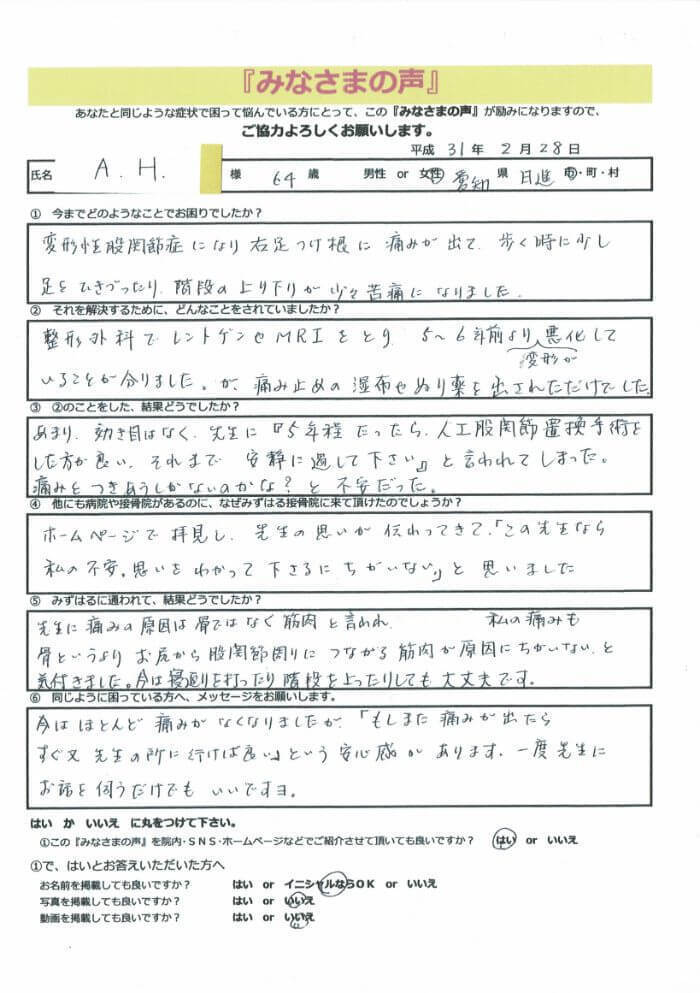 『みなさまの声』
あなたと同じような症状で困って悩んでいる方にとって、この『みなさまの声』が励みになりますので、
ご協力よろしくお願いします。
平成 31 年 2 月 28 日
氏名 A. H. 様 64 歳 男性 or 女性 愛知 県 日進 市・町・村
① 今までどのようなことでお困りでしたか？
変形性股関節症になり右足つけ根に痛みが出て、歩く時に少し
足をひきづったり、階段の上り下りが少々苦痛になりました。
② それを解決するために、どんなことをされていましたか？
整形外科でレントゲンやMRIをとり、5～6年前より悪化して
変形が
いることが分りました。が、痛み止めの湿布やぬり薬を出されただけでした。
③ ②のことをした、結果どうでしたか？
あまり、効き目はなく、先生に『5年程だったら、人工股関節置換手術を
した方が良い、それまで安静に過して下さい』と言われてしまった。
痛みとつきあうしかないのかな？と不安だった。
④ 他にも病院や接骨院があるのに、なぜみずはる接骨院に来て頂けたのでしょうか？
ホームページで拝見し、先生の思いが伝わってきて、「この先生なら
私の不安。思いをわかって下さるにちがいない」と思いました
⑤ みずはるに通われて、結果どうでしたか？
先生に痛みの原因は骨ではなく筋肉と言われ、 私の痛みも
骨というよりお尻から股関節周りにつながる筋肉が原因にちがいない、と
気付きました。今は寝返りを打ったり階段を上ったりしても大丈夫です。
⑥ 同じように困っている方へ、メッセージをお願いします。
今はほとんど痛みがなくなりましたが、「もしまた痛みが出たら
すぐ又先生の所に行けば良い」という安心感があります。一度先生に
お話を伺うだけでもいいですヨ。
はい か いいえ に丸をつけて下さい。
①この『みなさまの声』を院内・SNS・ホームページなどでご紹介させて頂いても良いですか？ はい or いいえ
①で、はいとお答えいただいた方へ
お名前を掲載しても良いですか？ はい or イニシャルならOK or いいえ
写真を掲載しても良いですか？ はい or いいえ
動画を掲載しても良いですか？ はい or いいえ